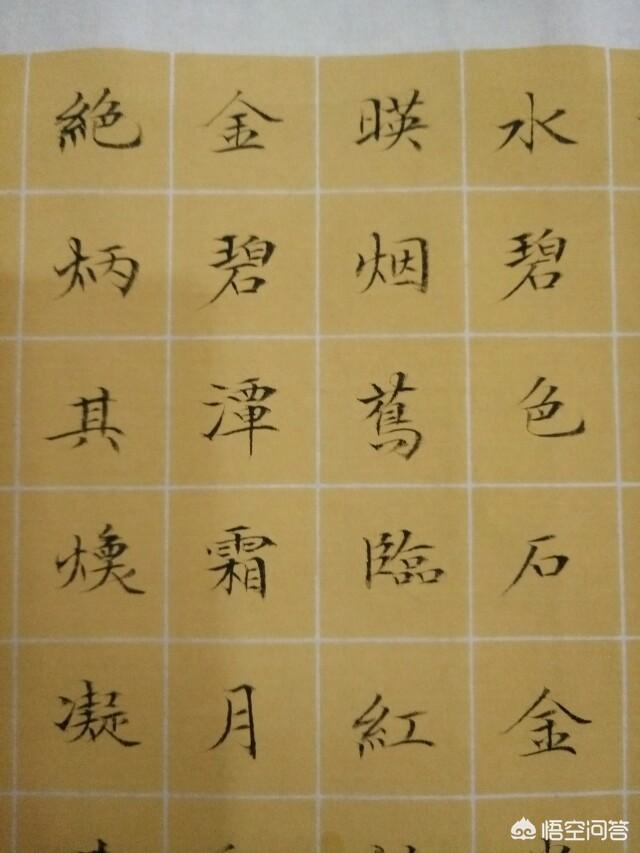 水碧色石金
暎烟蔦臨紅
金碧潭霜月
絶炳其煥凝
悟空问答